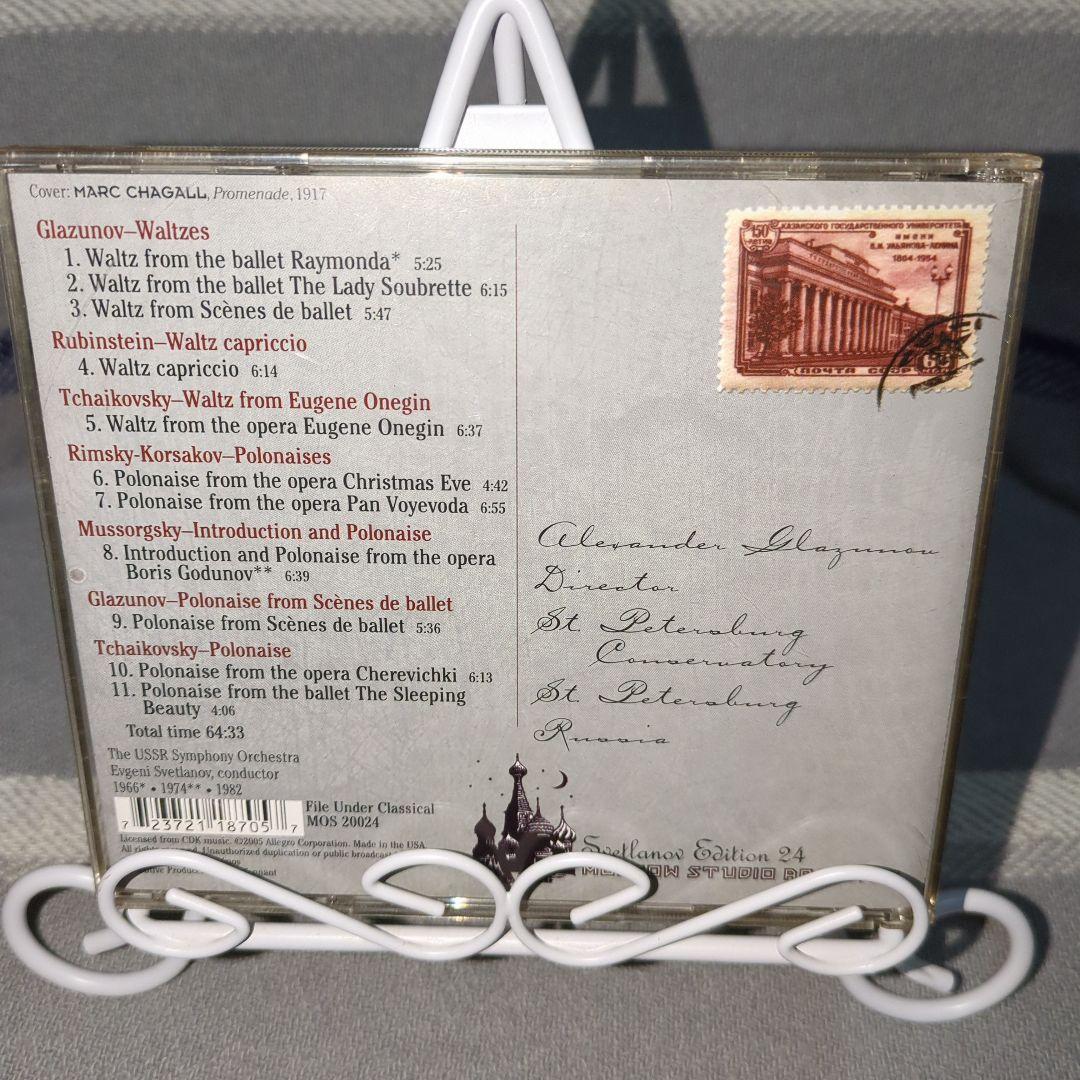 Cover: MARC CHAGALL, Promenade, 1917
Glazunov–Waltzes
1. Waltz from the ballet Raymonda* 5:25
2. Waltz from the ballet The Lady Soubrette 6:15
3. Waltz from Scènes de ballet 5:47
Rubinstein–Waltz capriccio
4. Waltz capriccio 6:14
Tchaikovsky–Waltz from Eugene Onegin
5. Waltz from the opera Eugene Onegin 6:37
Rimsky-Korsakov–Polonaises
6. Polonaise from the opera Christmas Eve 4:42
7. Polonaise from the opera Pan Voyevoda 6:55
Mussorgsky–Introduction and Polonaise
8. Introduction and Polonaise from the opera
Boris Godunov** 6:39
Glazunov–Polonaise from Scènes de ballet
9. Polonaise from Scènes de ballet 5:36
Tchaikovsky–Polonaise
10. Polonaise from the opera Cherevichki 6:13
11. Polonaise from the ballet The Sleeping
Beauty 4:06
Total time 64:33
The USSR Symphony Orchestra
Evgeni Svetlanov, conductor
1966* • 1974** • 1982
7 23721 18705 7
File Under Classical
MOS 20024
Licensed from CDK music. ©2005 Allegro Corporation. Made in the USA.
All Unauthorized duplication or public
150
КАЗАНСКОГО ГОСУДАРСТВЕННОГО УНИВЕРСИТЕТА
ИМЕНИ
В.И. УЛЬЯНОВА-ЛЕНИНА
1804-1954
ПОЧТА СССР
Alexander Glazunov
Director
St. Petersburg
Conservatory
St. Petersburg
Russia
Svetlanov Edition 24
STUDIO